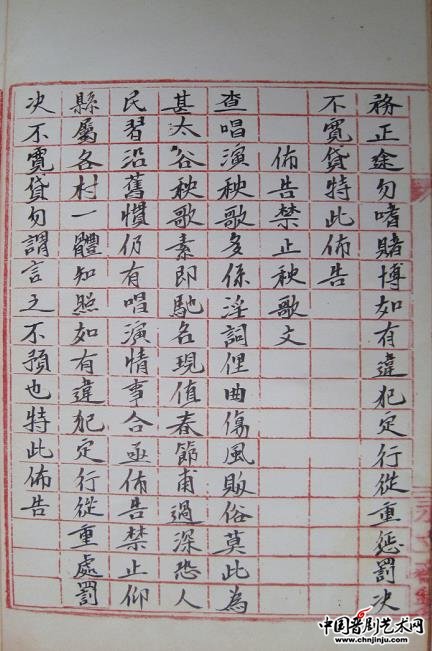 務正途勿嗜賭博如有違犯定行從重懲罰決
不寬貸特此佈告
佈告禁止秧歌文
查唱演秧歌多係淫詞俚曲傷風敗俗莫此為
甚太谷秧歌素即馳名現值春節甫過深恐人
民習沿舊慣仍有唱演情事合亟佈告禁止仰
縣屬各村一體知照如有違犯定行從重處罰
決不寬貸勿謂言之不預也特此佈告
中国晋剧艺术网
www.chnjinju.com